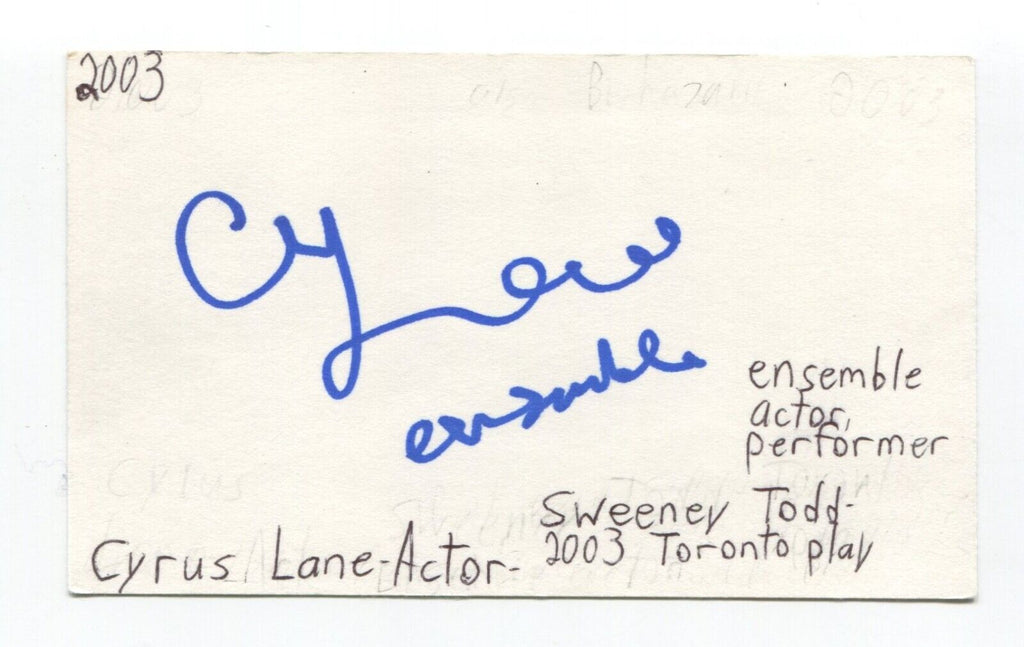 2003
Cyrus
ensemble
ensemble
actor,
performer
Sweeney Todd-
Cyrus Lane-Actor- 2003 Toronto play